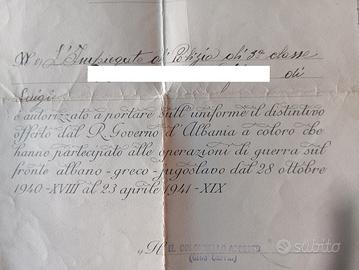 L'Impiegato di Polizia di 3ª classe
di
Luigi
è autorizzato a portare sull'uniforme il distintivo
offerto dal R. Governo d'Albania a coloro che
hanno partecipato alle operazioni di guerra sul
fronte albano-greco-jugoslavo dal 28 ottobre
1940-XVIII al 23 aprile 1941-XIX
Il
IL COLONNELLO
subito